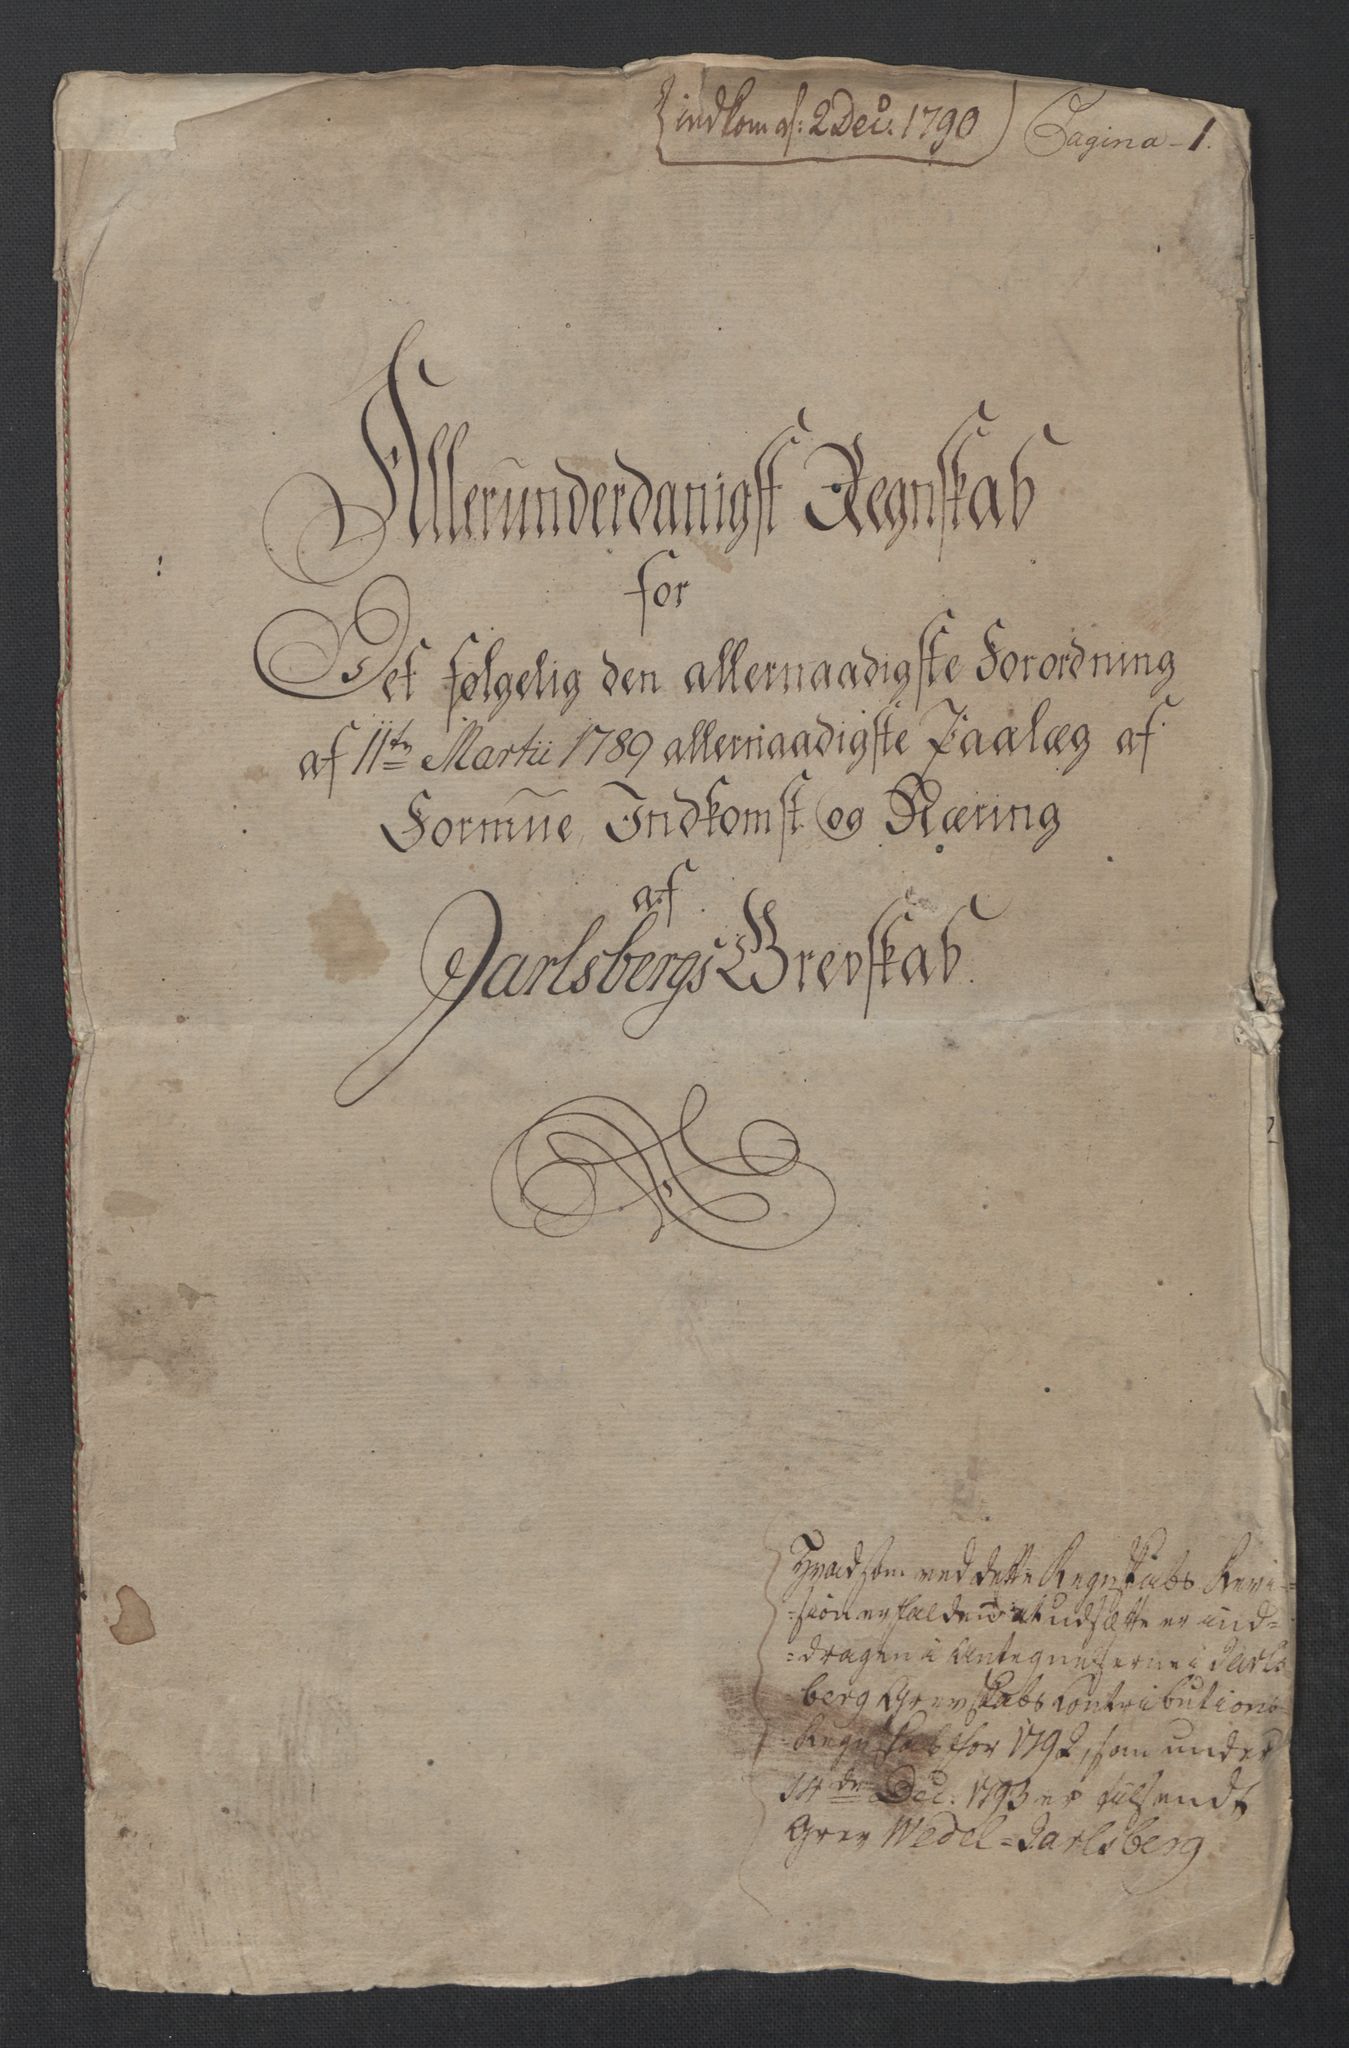 indkom d: 2 Dec. 1790
Pagina - 1.
Allerunderdanigst Regnskab
for
Det følgelig den allernaadigste Forordning
af 11te Martii 1789 allernaadigste Paalæg af
Formue, Indkomst og Næring
af
Jarlsbergs Grevskab.
Hvad som ved dette Regnskabs Revi-
-sion er falden at udsætte er ind-
-dragen i Antegnelserne i Jarls
berg Grevskabs Contributions
Regnskab for 1792, som under
14de Dec. 1793 er tilsendt
Grev Wedel-Jarlsberg